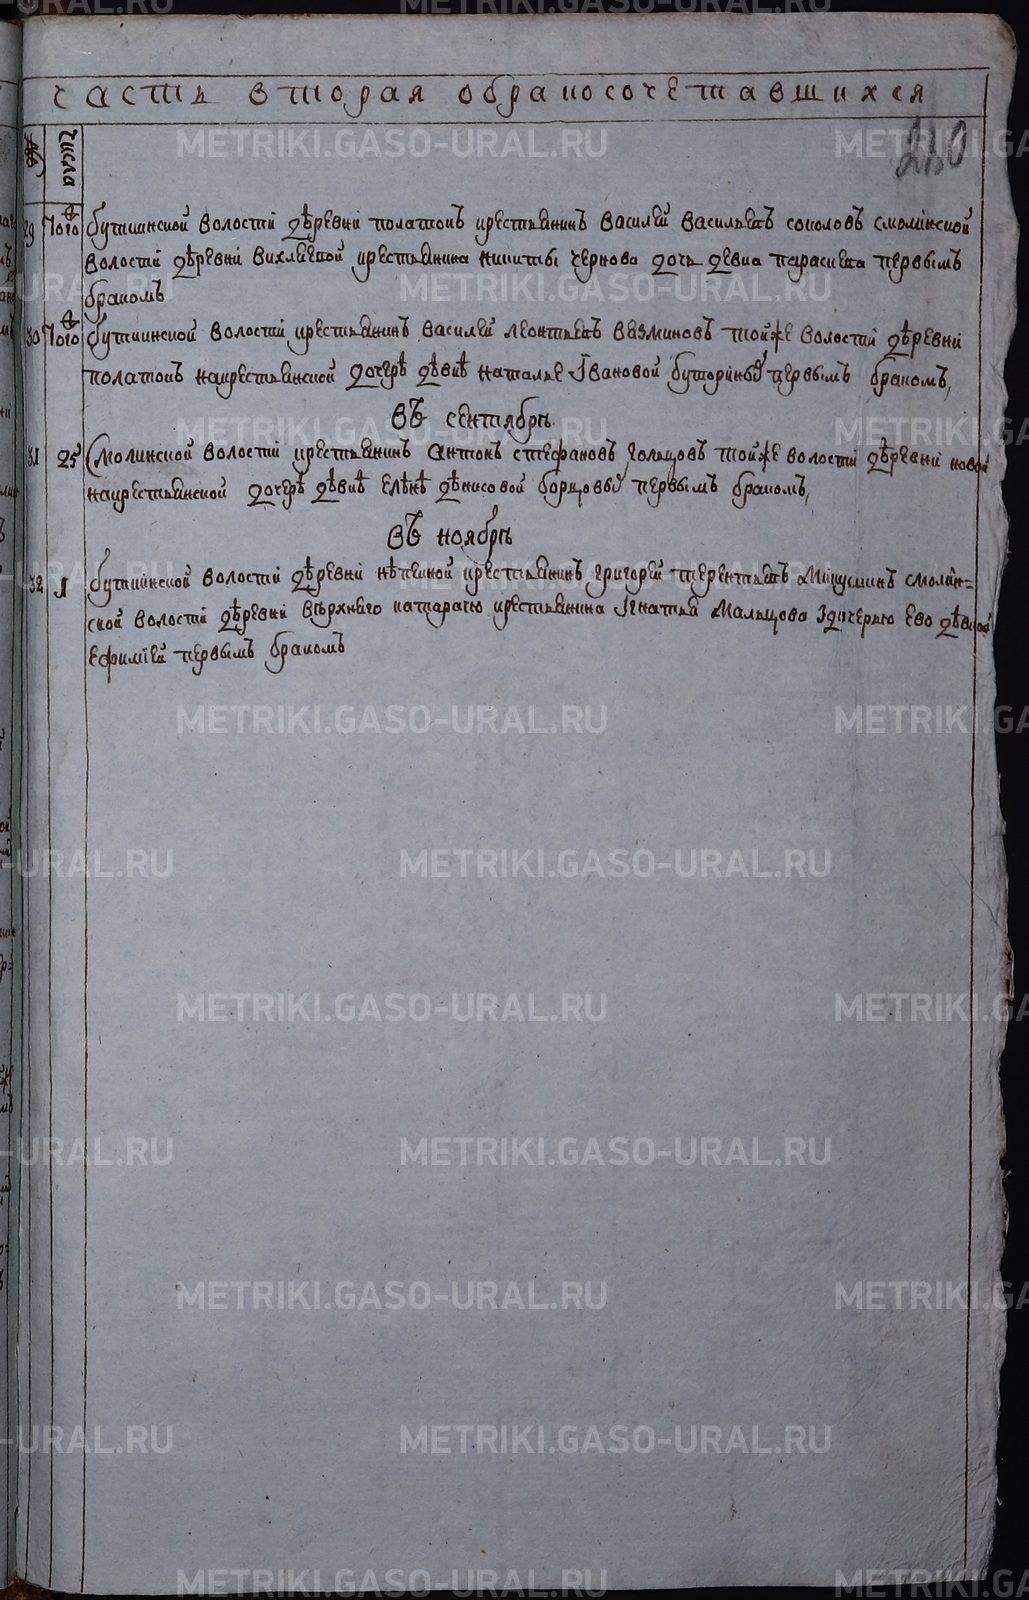 часть вторая обракосочетавшихся
210
№
числа
29 Того Буткинской волости деревни полатокъ крестьянинъ василей васильевъ соколовъ смолинской
волости деревни вихляевой крестьянина никиты чернова дочь девка параскева первымъ
бракомъ
30 Того Буткинской волости крестьянинъ василей леонтьевъ вязминовъ тойже волости деревни
полатокъ накрестьянской дочерѣ дѣвкѣ наталье Iвановой буториныхъ первымъ бракомъ,
Въ сентябрѣ
31 25 Смолинской волости крестьянинъ антонъ стефановъ гольцовъ тойже волости деревни новой
накрестьянской дочерѣ дѣвкѣ елѣнѣ дѣнисовой борцовыхъ первымъ бракомъ,
Въ ноябрѣ
32 1 буткинской волости деревни крестьянинъ григорей терентьевъ Микушинъ смолин=
ской волости деревни вѣрхняго катарачю крестьянина Iгнатья Мальцова здочерью Ево дѣвкой
Ефимiей первымъ бракомъ
METRIKI.GASO-URAL.RU